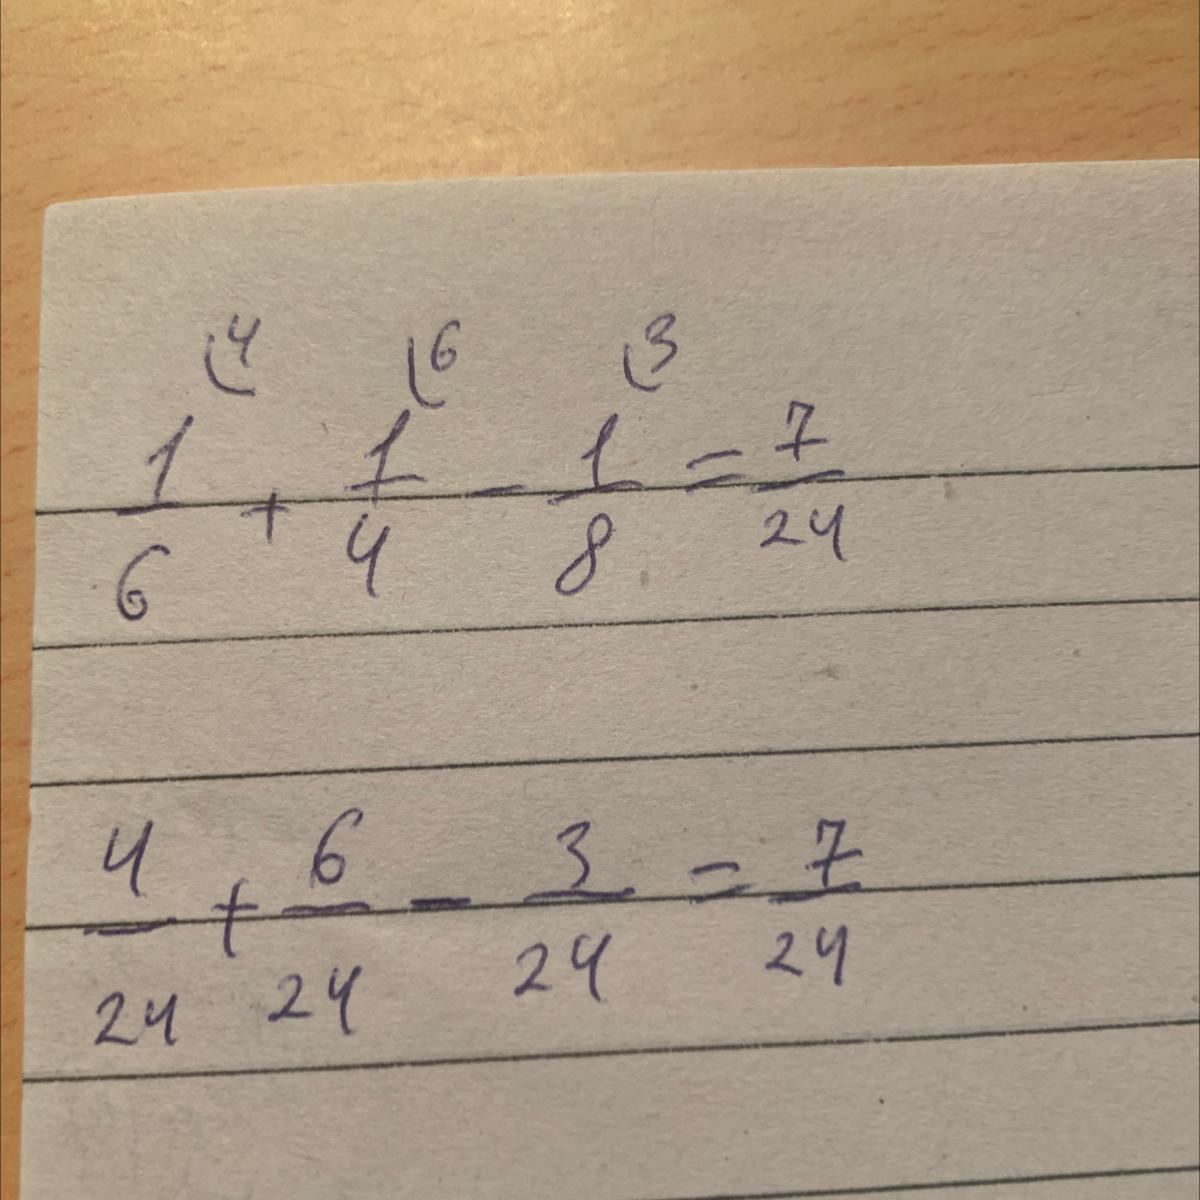 4 6 3
1/6 + 1/4 - 1/8 = 7/24
4/24 + 6/24 - 3/24 = 7/24